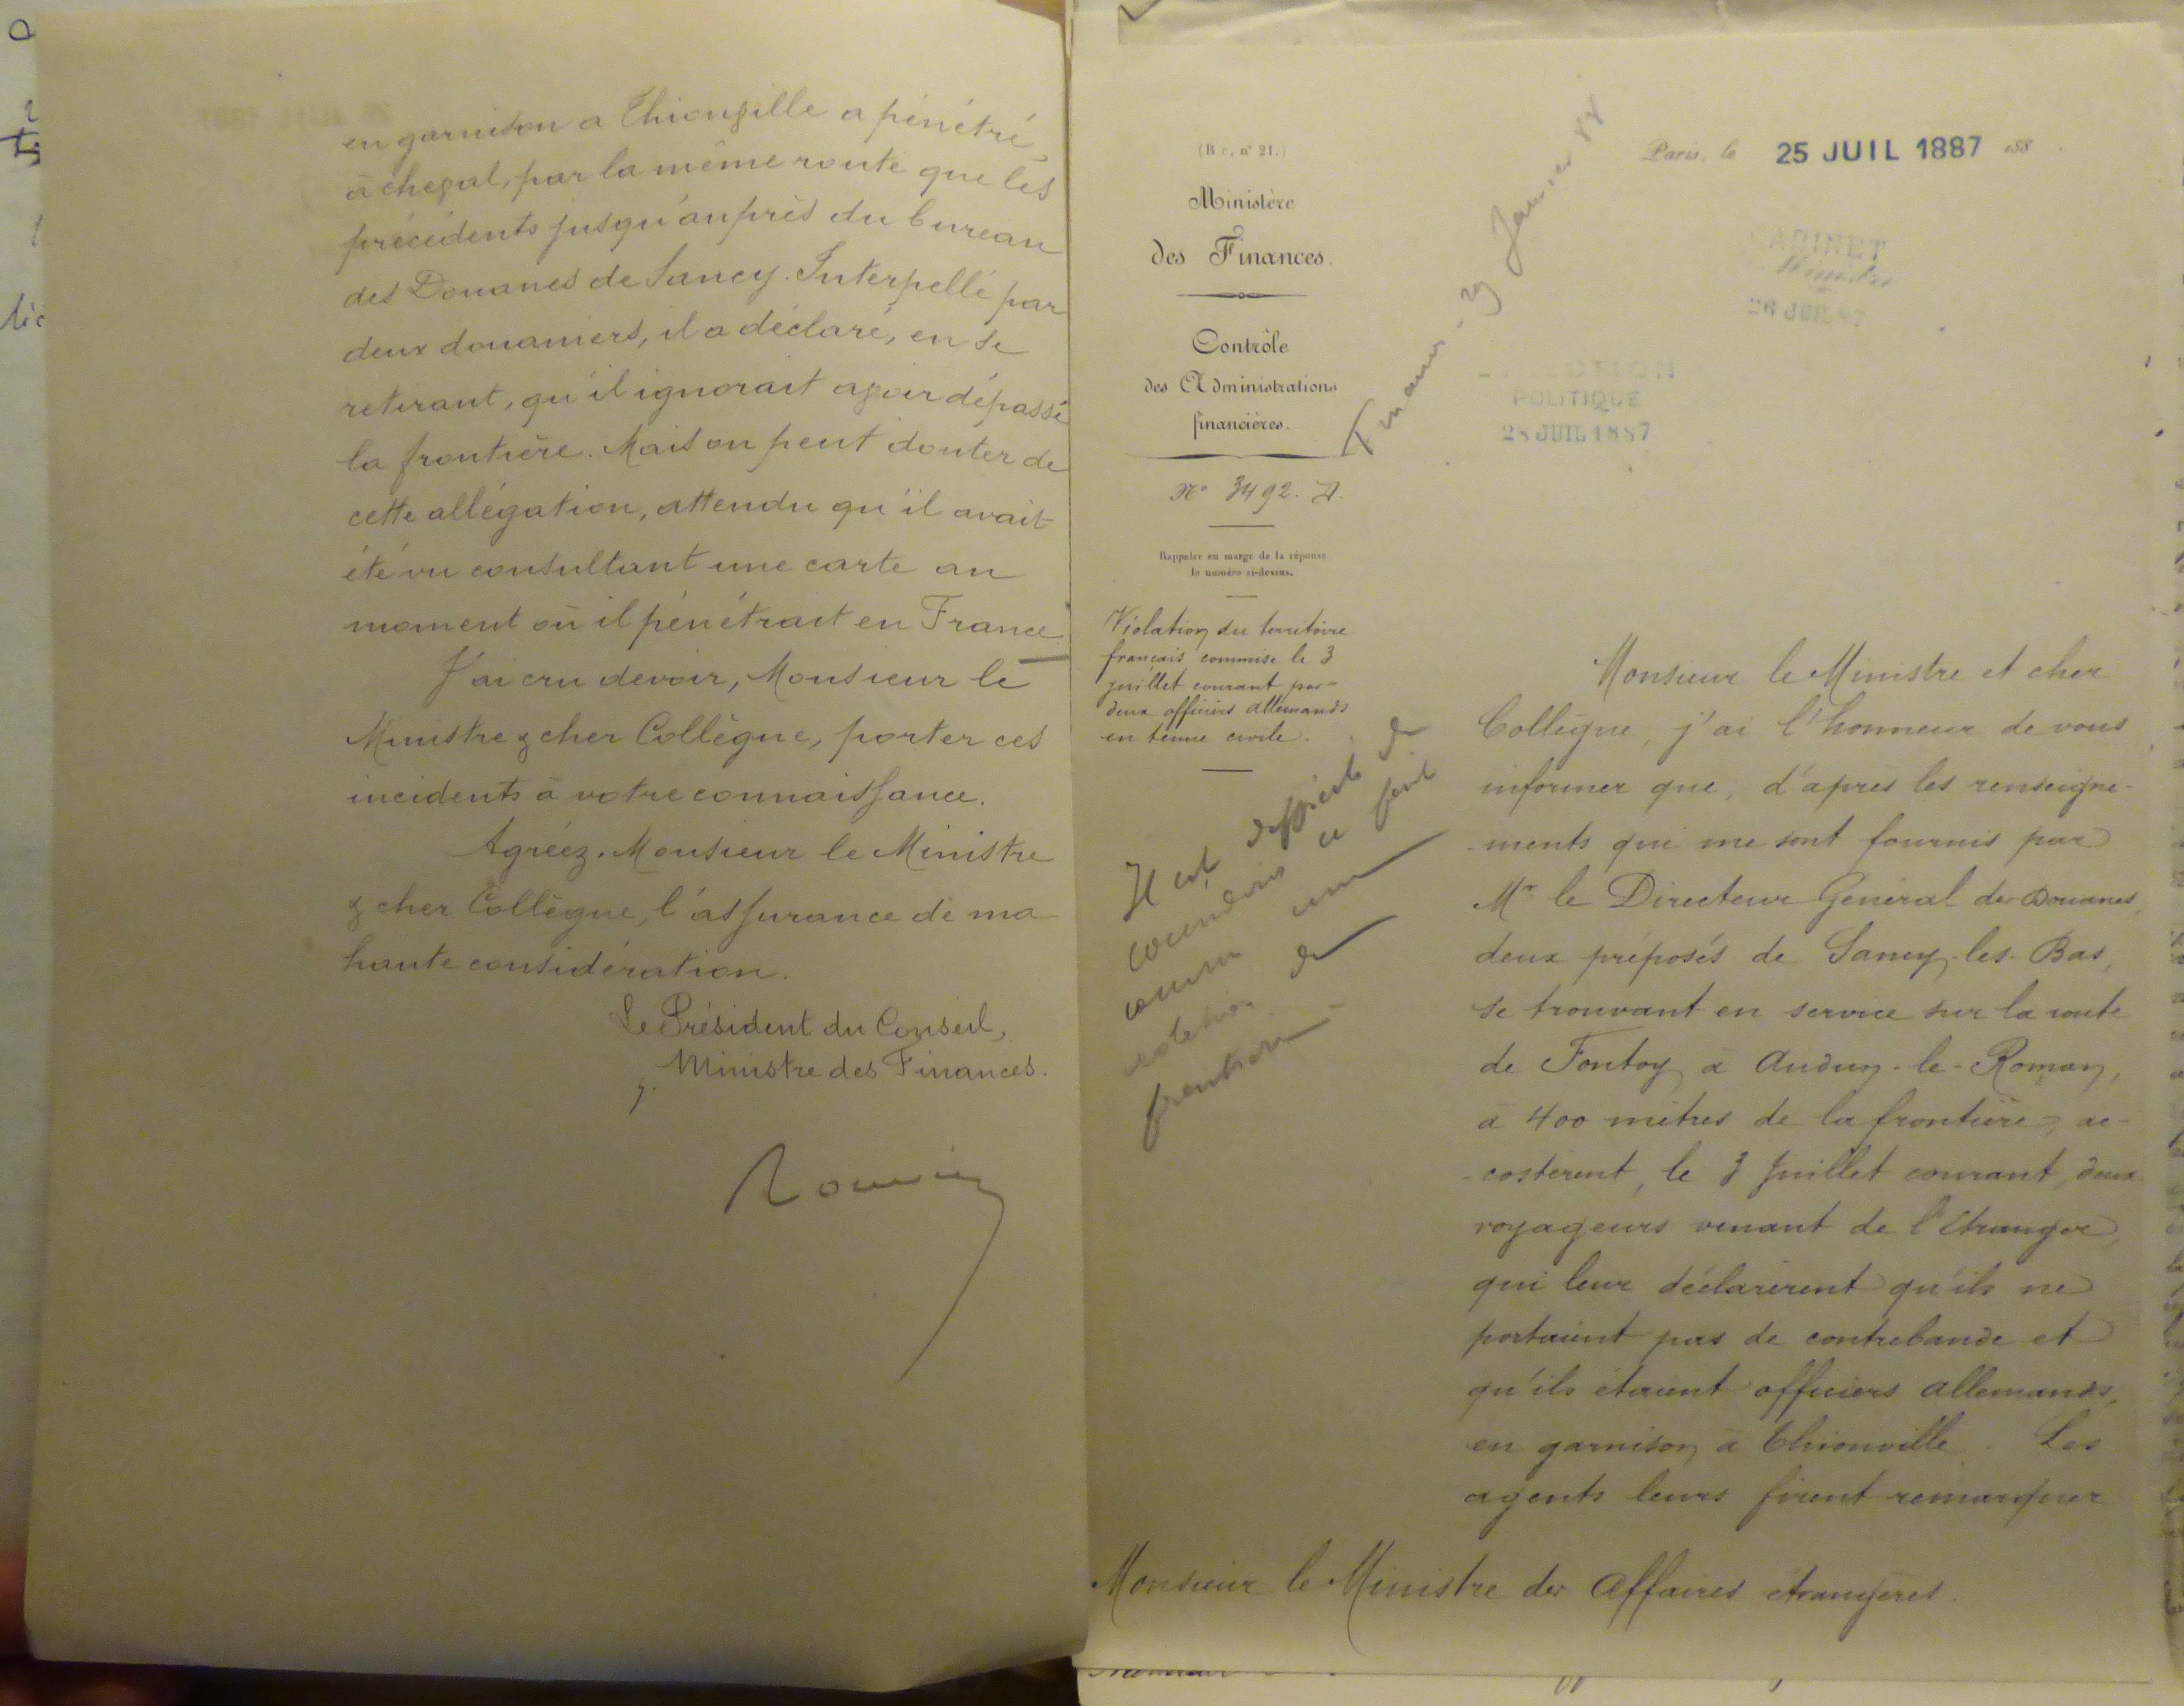 en garnison a Thionville a pénétré,
à cheval, par la même route que les
précédents jusqu'auprès du bureau
des Douanes de Sancy. Interpellé par
deux douaniers, il a déclaré, en se
retirant, qu'il ignorait avoir dépassé
la frontière. Mais on peut douter de
cette allégation, attendu qu'il avait
été vu consultant une carte au
moment où il pénétrait en France.
J'ai cru devoir, Monsieur le
Ministre & cher Collègue, porter ces
incidents à votre connaissance.
Agréez, Monsieur le Ministre
& cher Collègue, l'assurance de ma
haute considération.
Le Président du Conseil,
Ministre des Finances.
Rouvier
(B c, n° 21.)
Ministère
des Finances.
Contrôle
des Administrations
financières.
N° 3492. D.
Rappeler en marge de la réponse
le numéro ci-dessus.
Violation du territoire
français commise le 3
juillet courant par
deux officiers allemands
en tenue civile.
Il est difficile de
considérer ce fait
comme une
violation de
frontière
Finances
Janvier 88
Paris, le 25 JUIL 1887 188
CABINET
Ministre
26 JUIL 87
DIRECTION
POLITIQUE
28 JUIL 1887
Monsieur le Ministre et cher
Collègue, j'ai l'honneur de vous
informer que, d'après les renseigne-
-ments qui me sont fournis par
Mr le Directeur Général des Douanes,
deux préposés de Sancy-les-Bas,
se trouvant en service sur la route
de Fontoy à Audun-le-Roman,
à 400 mètres de la frontière, ac-
-costèrent, le 3 Juillet courant, deux
voyageurs venant de l'étranger,
qui leur déclarèrent qu'ils ne
portaient pas de contrebande et
qu'ils étaient officiers allemands,
en garnison à Thionville. Les
agents leurs firent remarquer
Monsieur le Ministre des Affaires étrangères.